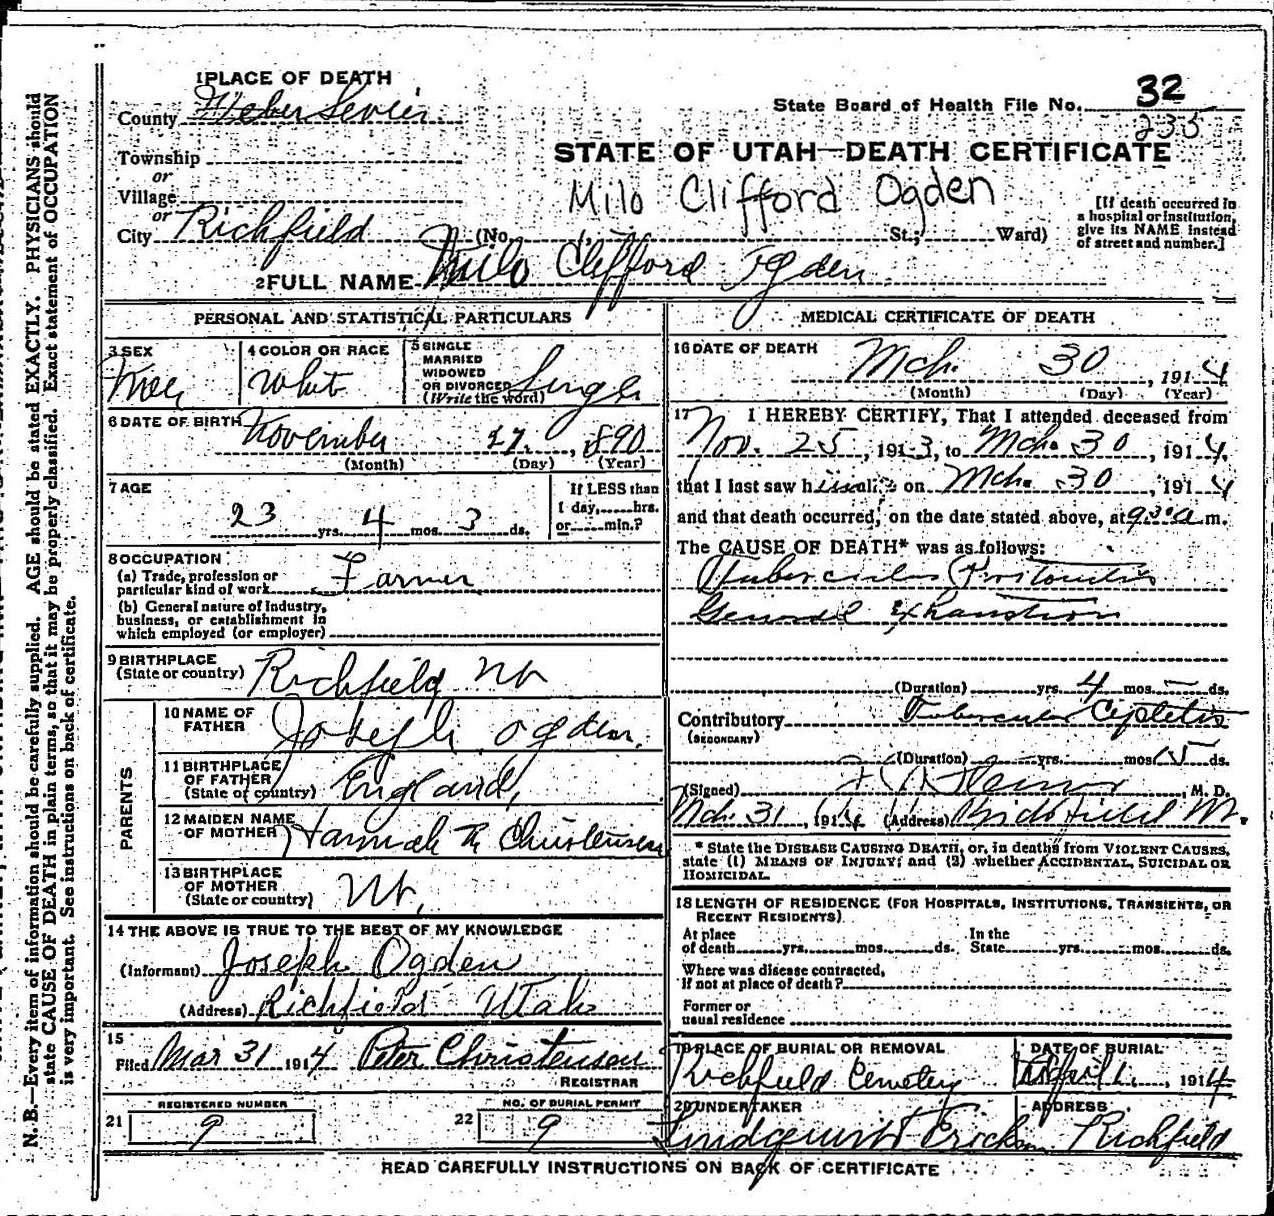 1 PLACE OF DEATH
County Weber Sevier
State Board of Health File No. 32
235
Township
or
Village
or
City Richfield (No. St.; Ward)
STATE OF UTAH—DEATH CERTIFICATE
Milo Clifford Ogden
[If death occurred in
a hospital or institution,
give its NAME instead
of street and number.]
2 FULL NAME Milo Clifford Ogden
PERSONAL AND STATISTICAL PARTICULARS
3 SEX
4 COLOR OR RACE
White
5 SINGLE
MARRIED
WIDOWED
OR DIVORCED
(Write the word) Single
6 DATE OF BIRTH November 27, 1890
(Month) (Day) (Year)
7 AGE
23 yrs. 4 mos. 3 ds.
If LESS than
1 day,......hrs.
or......min.?
8 OCCUPATION
(a) Trade, profession or
particular kind of work Farmer
(b) General nature of Industry,
business, or establishment in
which employed (or employer)
9 BIRTHPLACE
(State or country) Richfield Ut
PARENTS
10 NAME OF
FATHER Joseph Ogden
11 BIRTHPLACE
OF FATHER
(State or country) England
12 MAIDEN NAME
OF MOTHER Hannah Christensen
13 BIRTHPLACE
OF MOTHER
(State or country) Ut.
14 THE ABOVE IS TRUE TO THE BEST OF MY KNOWLEDGE
(Informant) Joseph Ogden
(Address) Richfield Utah
15
Filed Mar 31 1914 Peter Christenson
REGISTRAR
21 REGISTERED NUMBER
9
22 NO. OF BURIAL PERMIT
9
MEDICAL CERTIFICATE OF DEATH
16 DATE OF DEATH
Mch. 30, 1914
(Month) (Day) (Year)
17 I HEREBY CERTIFY, That I attended deceased from
Nov. 25, 1913, to Mch. 30, 1914.
that I last saw him alive on Mch. 30, 1914
and that death occurred, on the date stated above, at 930 a m.
The CAUSE OF DEATH* was as follows:
Tubercular Peritonitis
General Exhaustion
(Duration) yrs. 4 mos. — ds.
Contributory Tubercular
(SECONDARY)
(Duration) yrs. mos. 15 ds.
(Signed) , M. D.
Mch. 31, 1914 (Address) Richfield Ut.
* State the DISEASE CAUSING DEATH, or, in deaths from VIOLENT CAUSES,
state (1) MEANS OF INJURY; and (2) whether ACCIDENTAL, SUICIDAL OR
HOMICIDAL.
18 LENGTH OF RESIDENCE (FOR HOSPITALS, INSTITUTIONS, TRANSIENTS, OR
RECENT RESIDENTS)
At place
of death......yrs.......mos.......ds. In the
State......yrs.......mos.......ds.
Where was disease contracted,
If not at place of death?
Former or
usual residence
19 PLACE OF BURIAL OR REMOVAL
Richfield Cemetery
DATE OF BURIAL
April 1, 1914
20 UNDERTAKER
ADDRESS
Richfield
READ CAREFULLY INSTRUCTIONS ON BACK OF CERTIFICATE
N. B.—Every item of information should be carefully supplied. AGE should be stated EXACTLY. PHYSICIANS should
state CAUSE OF DEATH in plain terms, so that it may be properly classified. Exact statement of OCCUPATION
is very important. See instructions on back of certificate.